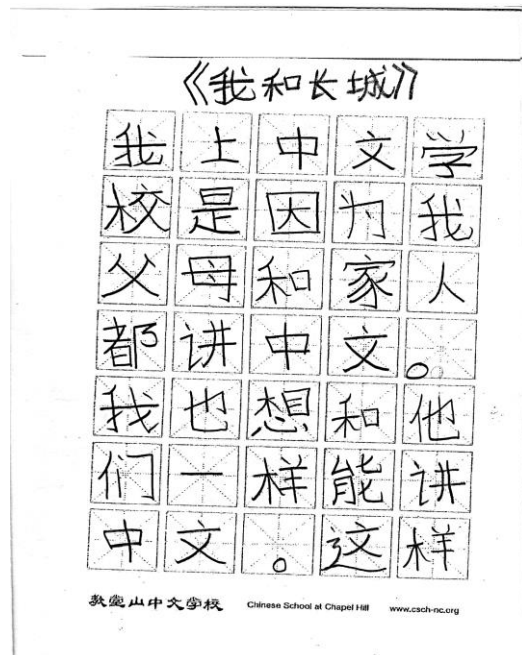 《我和长城》
我上中文学
校是因为我
父母和家人
都讲中文。
我也想和他
们一样能讲
中文。这样
教堂山中文学校 Chinese School at Chapel Hill www.csch-nc.org